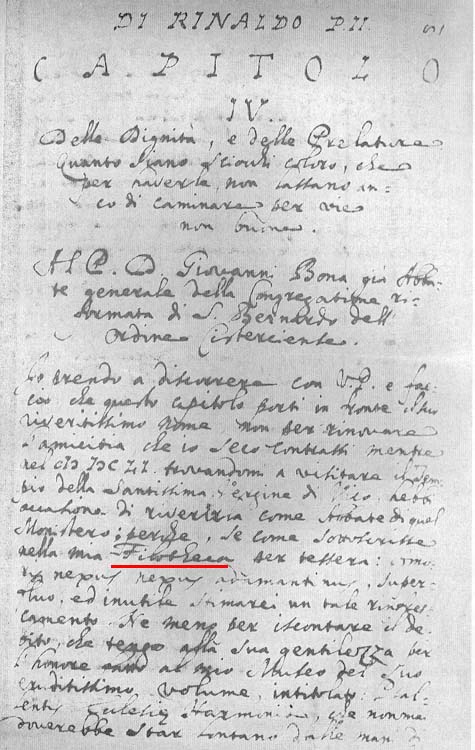 DI RINALDO P. II.
CAPITOLO
IV.
Delle Dignità, e delle Prelature
Quanto siano sciocchi coloro, che
per haverle, non lassano an-
co di caminare per vie
non buone.
Al P. D. Giovanni Bona già Abba-
te generale della Congregatione ri-
formata di S. Bernardo dell'
Ordine Cisterciense.
Io prendo a discorrere con V.P. e fac-
cio che questo capitolo porti in fronte il suo
riveritissimo nome non per rinovare
l'amicitia che io seco contratti mentre
nel trovandomi a visitare il Tem-
pio della Santissima Vergine di Vico, nebbi
occasione di riverirla come Abbate di quel
Monistero; perche, se come sovoscritte
nella mia Filotheca per tessera: amo-
ris nexus nexus adamantinus, super-
fluo, ed inutile stimarei un tale rinfres-
camento. Ne meno per iscontare il de-
bito, che tengo alla sua gentilezza per
l'honore al mio Museo del suo
eruditissimo volume, intitolato:
Harmonia, che non mai
doverebbe star lontano dalle mani di